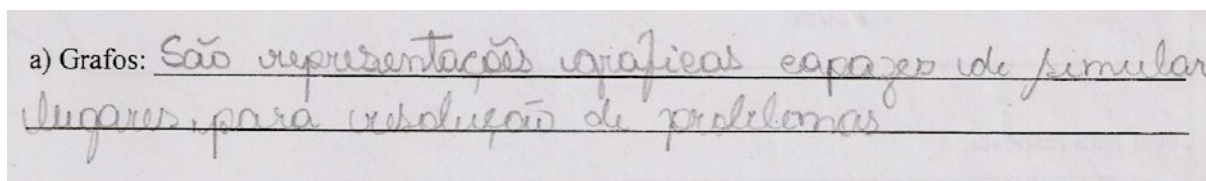 a) Grafos: São representações gráficas capazes de simular
lugares, para resolução de problemas